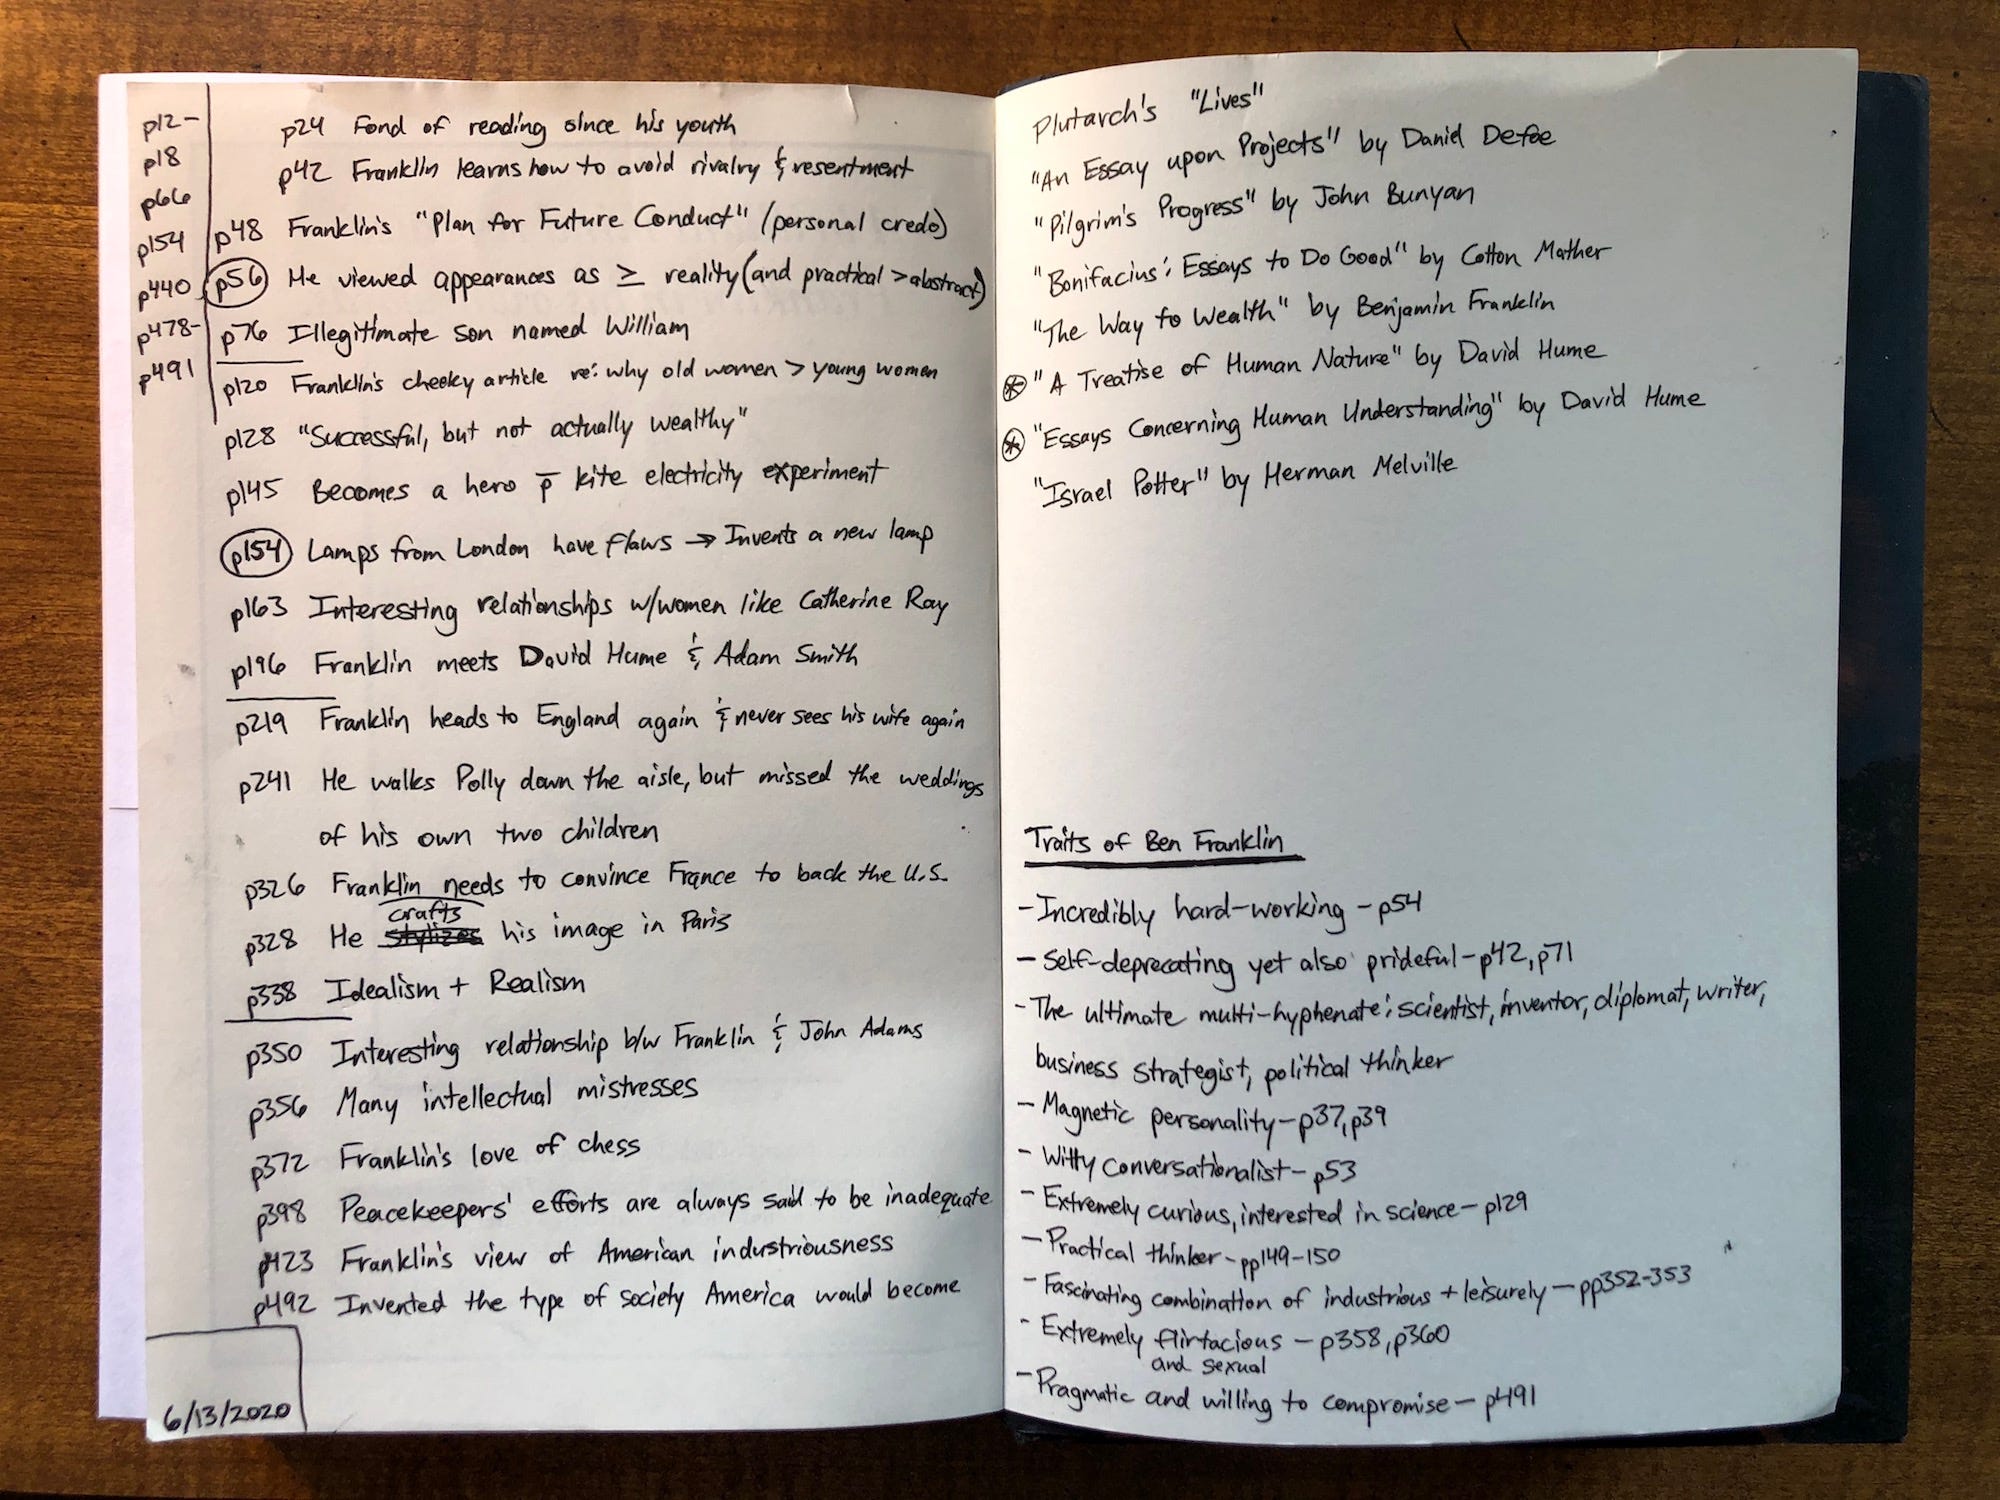 p12-
p18
p66
p154
p440
p478-
p491
p24 Fond of reading since his youth
p42 Franklin learns how to avoid rivalry & resentment
p48 Franklin's "Plan for Future Conduct" (personal credo)
p56 He viewed appearances as ≥ reality (and practical > abstract)
p76 Illegitimate son named William
p120 Franklin's cheeky article re: why old women > young women
p128 "Successful, but not actually wealthy"
p145 Becomes a hero p̄ kite electricity experiment
p154 Lamps from London have flaws → Invents a new lamp
p163 Interesting relationships w/women like Catherine Ray
p196 Franklin meets David Hume & Adam Smith
p219 Franklin heads to England again & never sees his wife again
p241 He walks Polly down the aisle, but missed the weddings
of his own two children
p326 Franklin needs to convince France to back the U.S.
crafts
p328 He stylizes his image in Paris
p338 Idealism + Realism
p350 Interesting relationship b/w Franklin & John Adams
p356 Many intellectual mistresses
p372 Franklin's love of chess
p398 Peacekeepers' efforts are always said to be inadequate
p423 Franklin's view of American industriousness
p492 Invented the type of society America would become
6/13/2020
Plutarch's "Lives"
"An Essay upon Projects" by Daniel Defoe
"Pilgrim's Progress" by John Bunyan
"Bonifacius: Essays to Do Good" by Cotton Mather
"The Way to Wealth" by Benjamin Franklin
* "A Treatise of Human Nature" by David Hume
* "Essays Concerning Human Understanding" by David Hume
"Israel Potter" by Herman Melville
Traits of Ben Franklin
- Incredibly hard-working - p54
- Self-deprecating yet also prideful - p42, p71
- The ultimate multi-hyphenate: scientist, inventor, diplomat, writer,
business strategist, political thinker
- Magnetic personality - p37, p39
- Witty conversationalist - p53
- Extremely curious, interested in science - p129
- Practical thinker - pp149-150
- Fascinating combination of industrious + leisurely - pp352-353
- Extremely flirtacious - p358, p360
and sexual
- Pragmatic and willing to compromise - p491